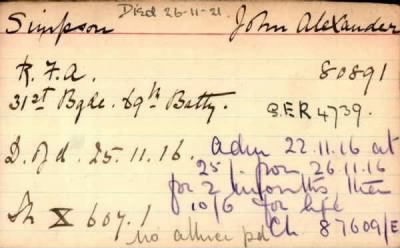 Died 26-11-21.
Simpson John Alexander
R.F.A. 80891
31st Bgde. 69th Batty. S.E.R 4739.
D. of d. 25.11.16. Adm 22.11.16 at
25 from 26.11.16
for 2 months then
10/6 for life
Sh X 607.1
no allnce pd Ch 87609/E